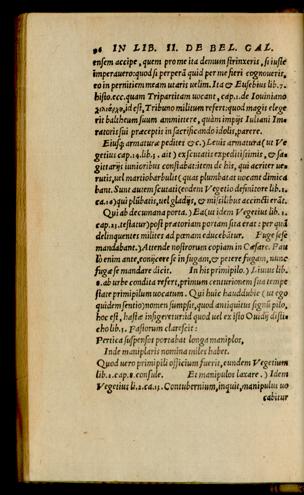 96 IN LIB. II. DE BEL. GAL.
ensem accipe, quem pro me ita demum strinxeris, si iuste
imperauero: quod si perperã quid per me fieri cognoueris,
eo in pernitiem meam utaris uelim. Ita & Eusebius lib. 7.
histo. ecc. quam Tripartitam uocant, cap. 1. de Iouiniano
id est, Tribuno militum refert: quod magis elege
rit baltheum suum ammittere, quàm impijs Iuliani Im
ratoris sui præceptis in sacrificando idolis, parere.
Eiusq́; armaturæ pedites & c.) Leuis armatura (ut Ve
getius cap. 14. lib. 3. ait) ex scutatis expeditissimis, & sa-
gittarijs iunioribus constabat item de his, qui acriter ue
rutis, uel martiobarbulis (quas plumbatas uocant dimica
bant. Sunt autem scutati (eodem Vegetio definitore lib. 2.
ca. 14) qui plũbatis, uel gladijs, & missilibus accincti erãt.
Qui ab decumana porta.) Ea (ut idem Vegetius lib. 1.
cap. 23. testatur) post prætorium portam sita erat: per quã
delinquentes milites ad pœnam educebitur. Fuge sese
mandabant.) Attende nostrorum copiam in Cæsare. Pau
lò enim ante, conijcere se in fugam, & petere fugam, nunc
fugæ se mandare dicit. In his primipilo.) Liuius lib.
8. ab urbe condita refert, primum centurionem sua tempe
state primipilum uocatum. Qui huic hauddubie (ut ego
quidem sentio) nomen sumpsit, quod antiquitus signũ pilo,
hoc est, hastæ insigeretur: id quod uel ex isto Ouidij disti-
cho lib. 3. Fastorum clarescit:
Pertica suspensos portabat longa maniplos,
Inde maniplaris nomina miles habet.
Quod uero primipili officium fuerit, eundem Vegetium
lib. 2. cap. 8. consule. Et manipulos laxare.) Idem
Vegetius li. 2. ca. 13. Contubernium, inquit, manipulus uo
cabitur